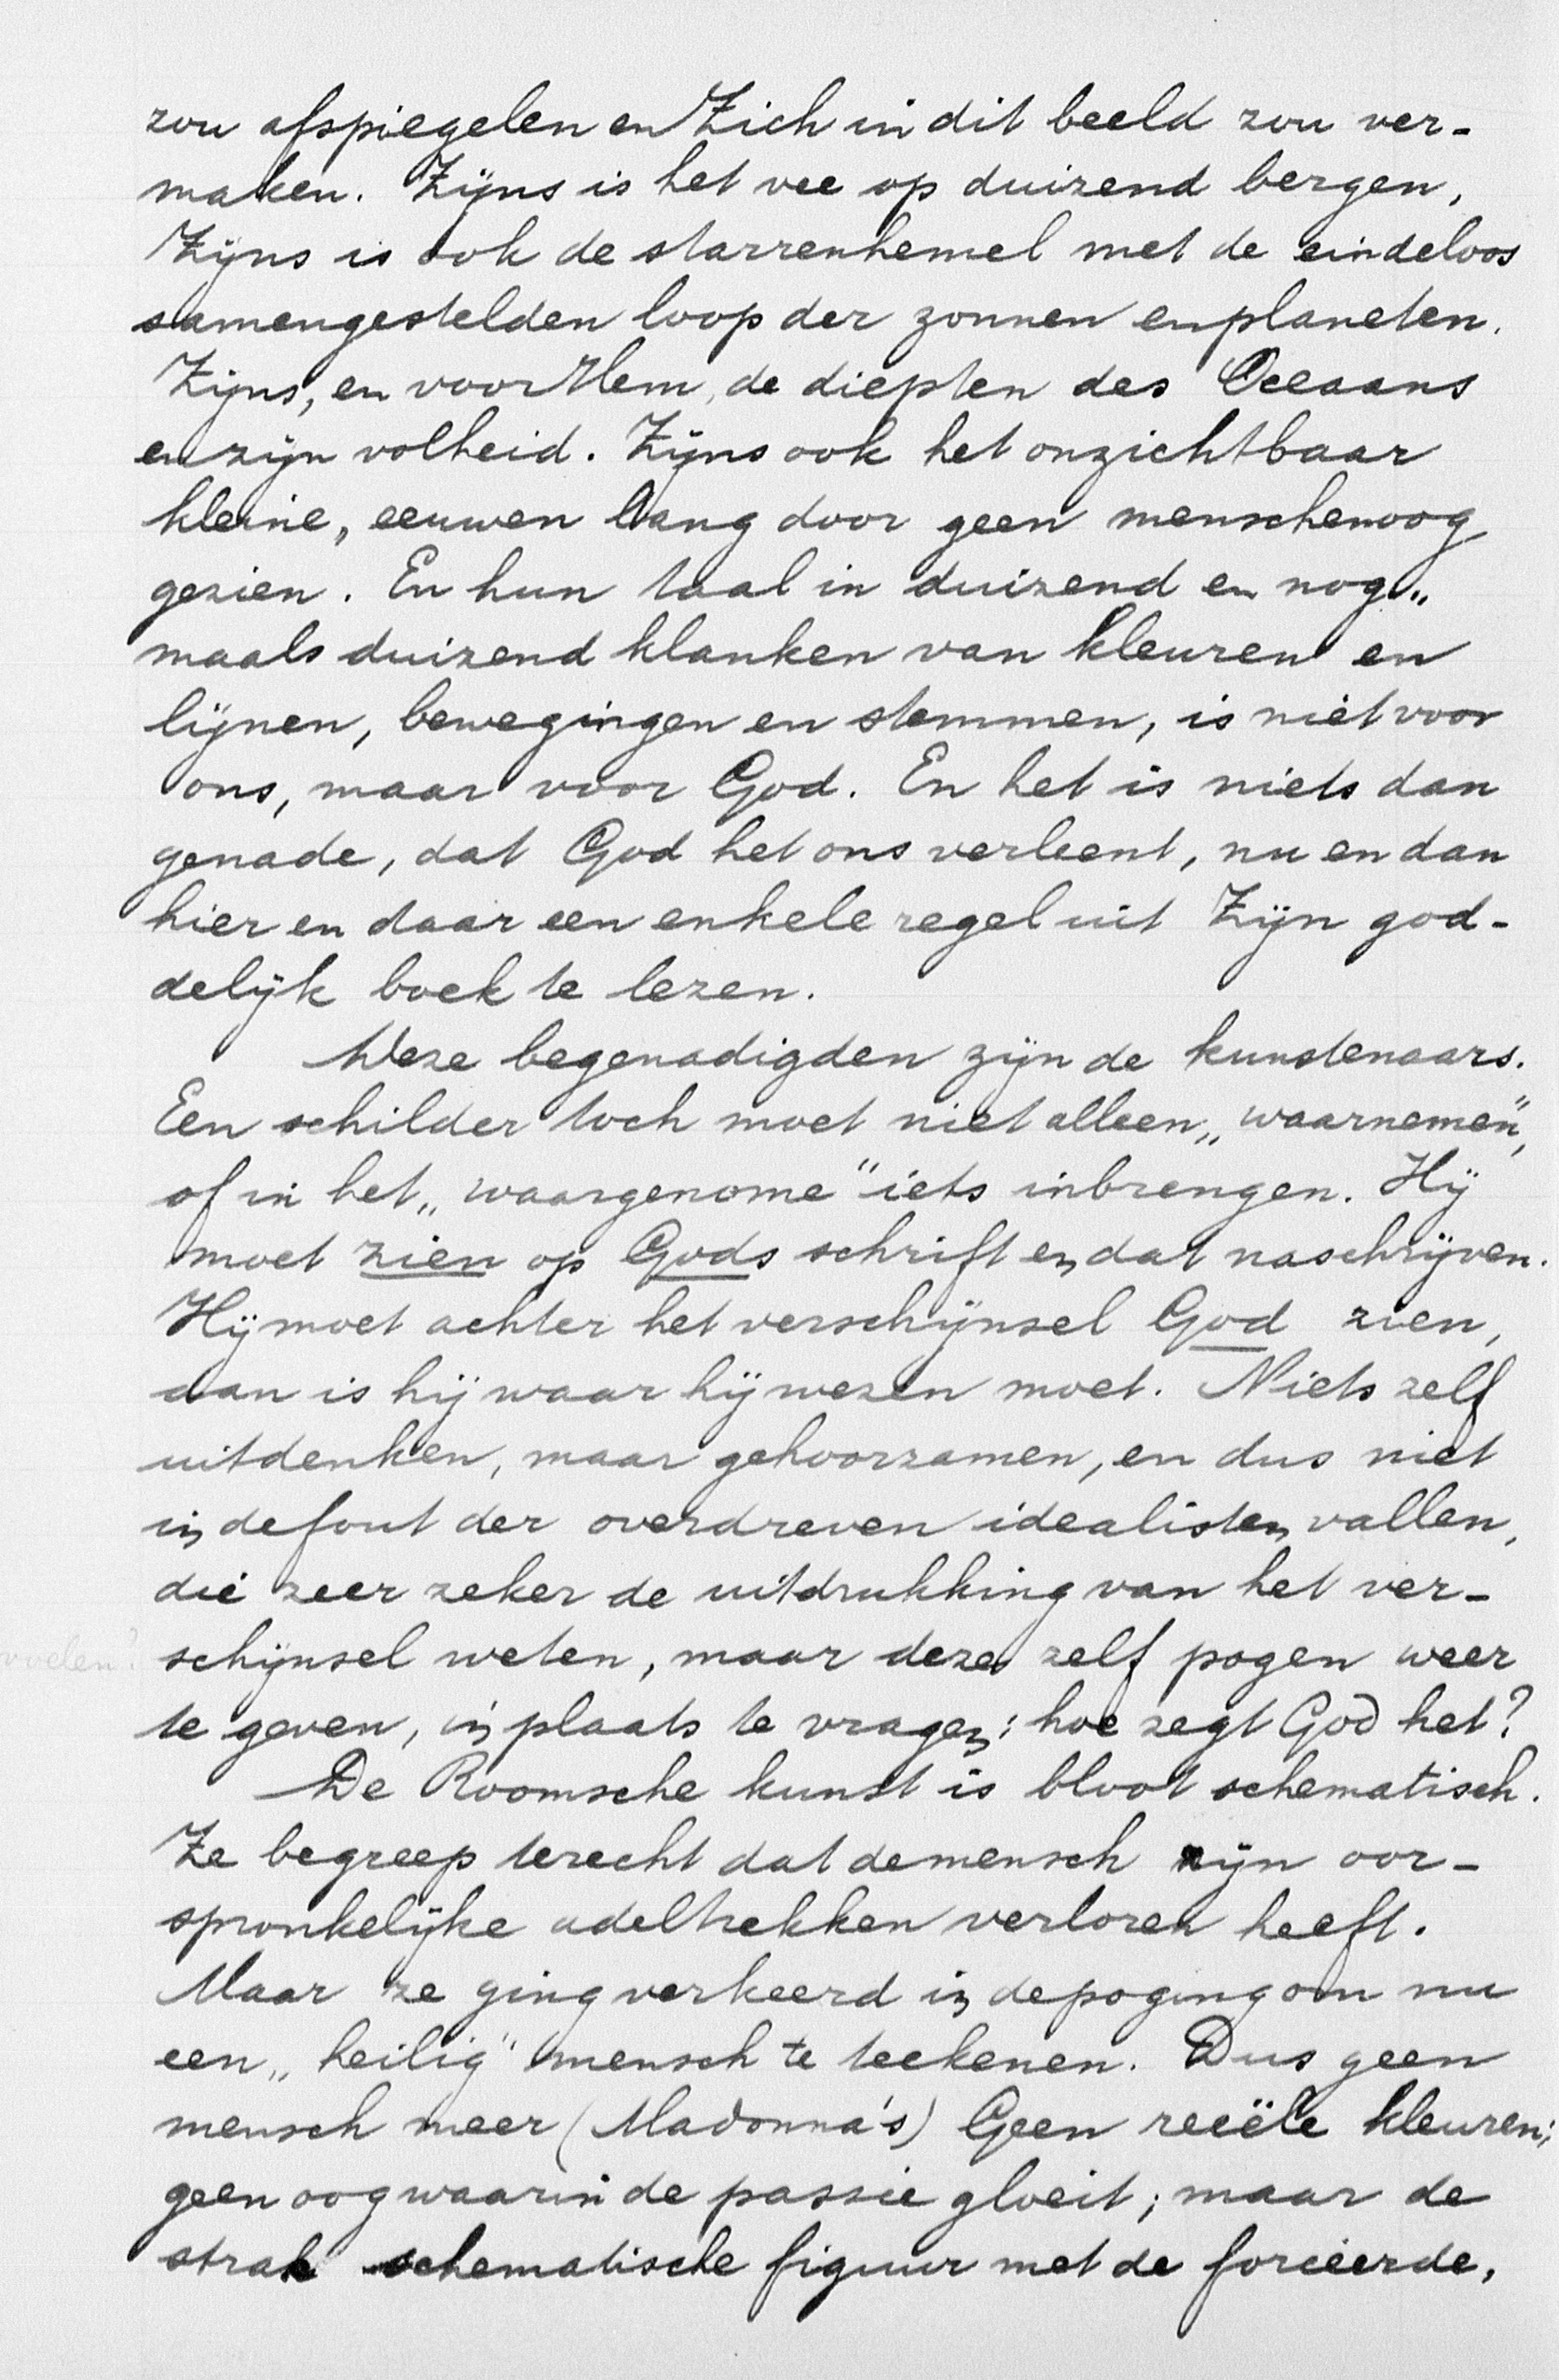 zou afspiegelen en Zich in dit beeld zou ver-
maken. Zijns is het vee op duizend bergen,
Zijns is ook de starrenhemel met de eindeloos
samengestelden loop der zonnen en planeten.
Zijns, en voor Hem, de diepten des Oceaans
en zijn volheid. Zijns ook het onzichtbaar
kleine, eeuwen lang door geen menschenoog
gezien. En hun taal in duizend en nog„
maals duizend klanken van kleuren en
lijnen, bewegingen en stemmen, is niet voor
ons, maar voor God. En het is niets dan
genade, dat God het ons verleent, nu en dan
hier en daar een enkele regel uit Zijn god-
delijk boek te lezen.
Deze begenadigden zijn de kunstenaars.
Een schilder toch moet niet alleen „waarnemen",
of in het „waargenome" iets inbrengen. Hij
moet zien op Gods schrift en dat naschrijven.
Hij moet achter het verschijnsel God zien,
dan is hij waar hij wezen moet. Niets zelf
uitdenken, maar gehoorzamen, en dus niet
in de fout der overdreven idealisten vallen,
die zeer zeker de uitdrukking van het ver-
voelen?
schijnsel weten, maar deze zelf pogen weer
te geven, in plaats te vragen: hoe zegt God het?
De Roomsche kunst is bloot schematisch.
Ze begreep terecht dat de mensch zijn oor-
spronkelijke adeltrekken verloren heeft.
Maar ze ging verkeerd in de poging om nu
een „heilig" mensch te teekenen. Dus geen
mensch meer (Madonna's) Geen reeële kleuren;
geen oog waarin de passie gloeit; maar de
strak schematische figuur met de forceerde,